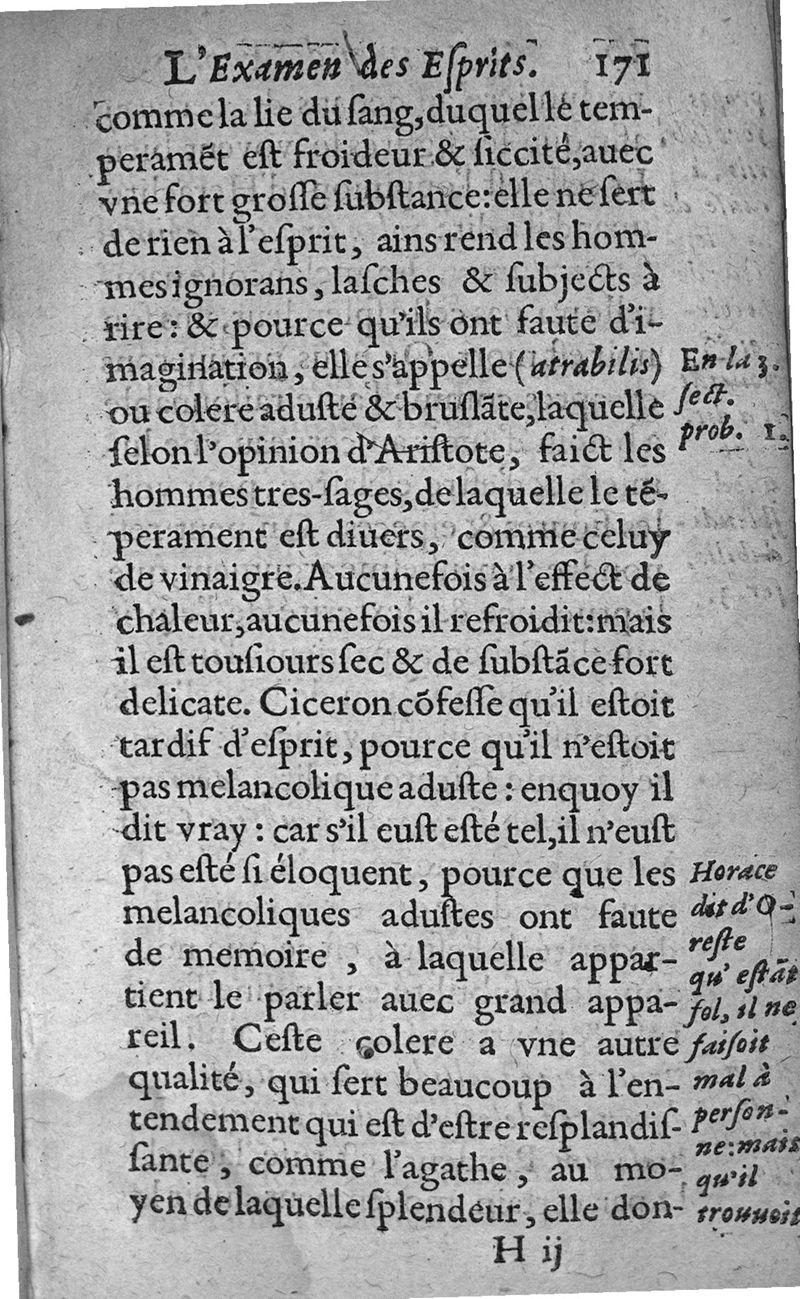 L'Examen des Eſprits. 171
comme la lie du ſang, duquel le tem-
peramẽt eſt froideur & ſiccité, auec
vne fort groſſe ſubſtance: elle ne ſert
de rien à l'eſprit, ains rend les hom-
mes ignorans, laſches & ſubjects à
rire: & pource qu'ils ont faute d'i-
magination, elle s'appelle (atrabilis)
ou colere aduſte & bruſlãte, laquelle
ſelon l'opinion d'Ariſtote, faict les
hommes tres-ſages, de laquelle le tẽ-
perament eſt diuers, comme celuy
de vinaigre. Aucunefois à l'effect de
chaleur, aucunefois il refroidit: mais
il eſt touſiours ſec & de ſubſtãce fort
delicate. Ciceron cõfeſſe qu'il eſtoit
tardif d'eſprit, pource qu'il n'eſtoit
pas melancolique aduſte: enquoy il
dit vray: car s'il euſt eſté tel, il n'euſt
pas eſté ſi éloquent, pource que les
melancoliques aduſtes ont faute
de memoire, à laquelle appar-
tient le parler auec grand appa-
reil. Ceſte colere a vne autre
qualité, qui ſert beaucoup à l'en-
tendement qui eſt d'eſtre reſplandiſ-
ſante, comme l'agathe, au mo-
yen de laquelle ſplendeur, elle don-
H ij
En la 3.
ſect.
prob. 1.
Horace
dit d'O-
reſte
qu'eſtãt
fol, il ne
faiſoit
mal à
perſon-
ne: mais
qu'il
trouuoit